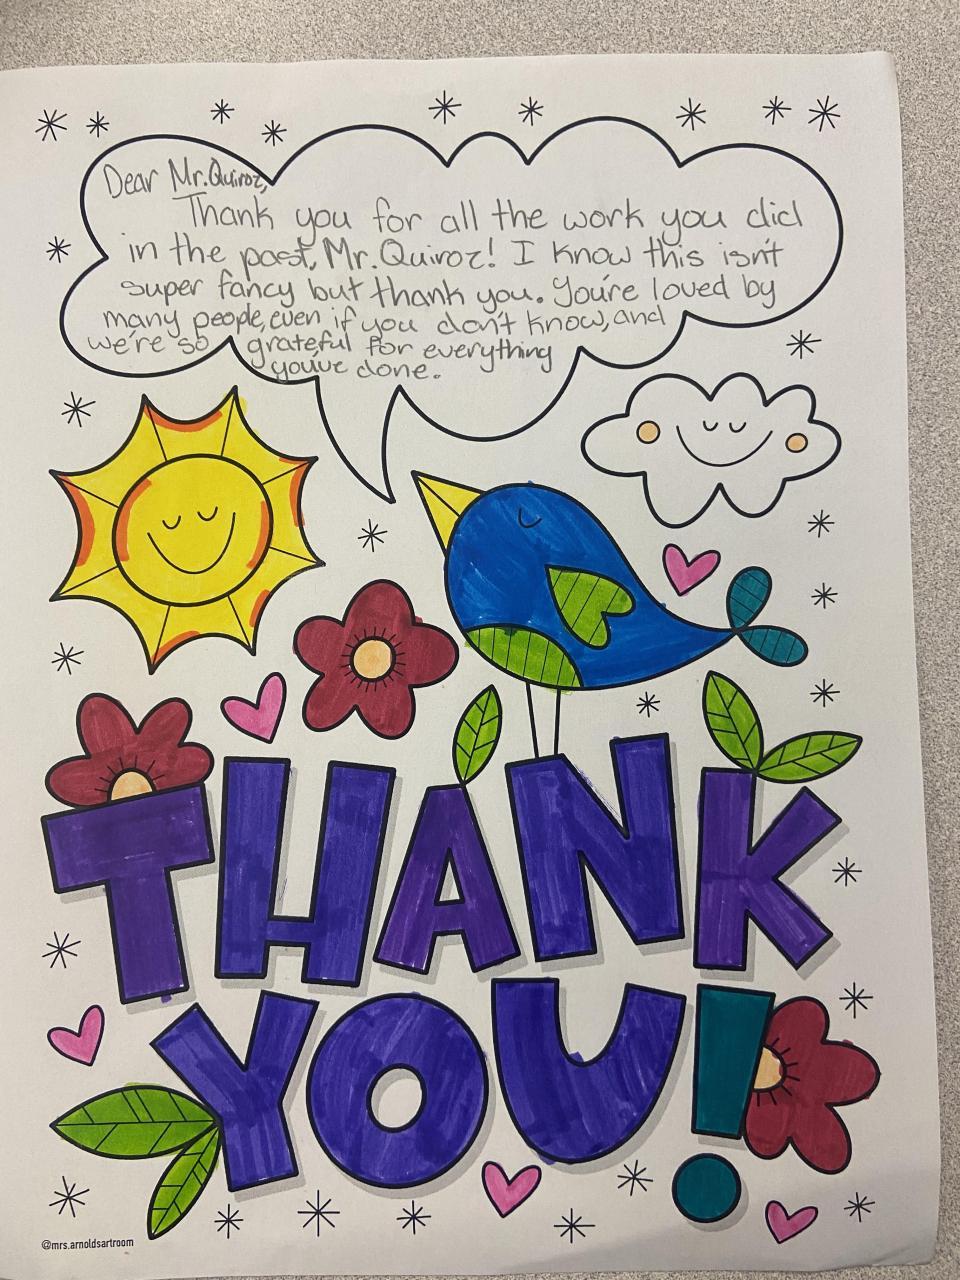 Dear Mr. Quiroz,
Thank you for all the work you did
in the past, Mr. Quiroz! I know this isn't
super fancy but thank you. You're loved by
many people, even if you don't know, and
we're so grateful for everything
you've done.
THANK
YOU!
@mrs.arnoldsartroom